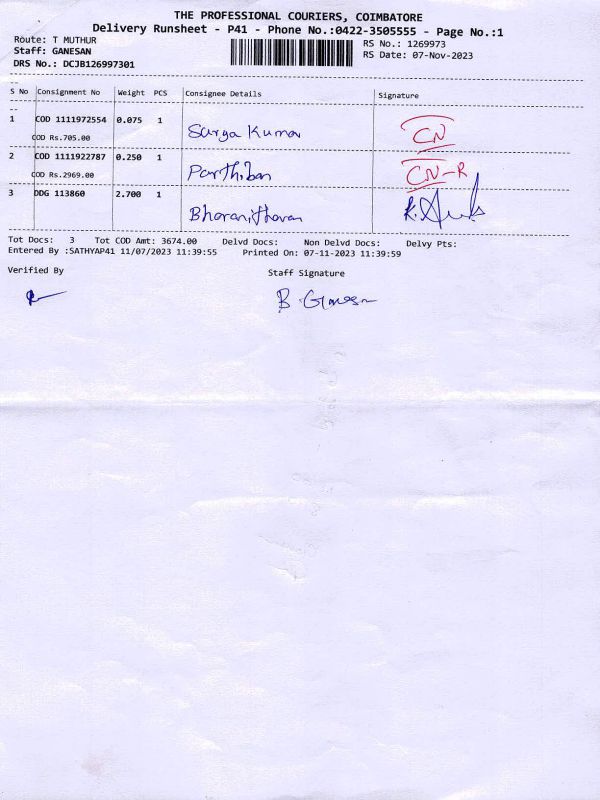 THE PROFESSIONAL COURIERS, COIMBATORE
Delivery Runsheet - P41 - Phone No.:0422-3505555 - Page No.:1
Route: T MUTHUR RS No.: 1269973
Staff: GANESAN RS Date: 07-Nov-2023
DRS No.: DCJB126997301
S No Consignment No Weight PCS Consignee Details Signature
1 COD 1111972554 0.075 1 Surya Kumar CN
COD Rs.705.00
2 COD 1111922787 0.250 1 Parthiban CN-R
COD Rs.2969.00
3 DDG 113860 2.700 1 Bharanitharan
Tot Docs: 3 Tot COD Amt: 3674.00 Delvd Docs: Non Delvd Docs: Delvy Pts:
Entered By :SATHYAP41 11/07/2023 11:39:55 Printed On: 07-11-2023 11:39:59
Verified By Staff Signature
B. Ganesan